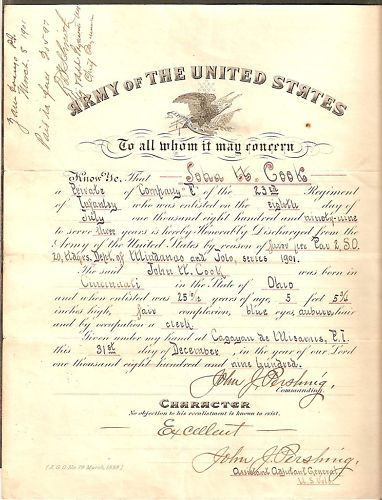 March 5 1901
Paid in full $
ARMY OF THE UNITED STATES
To all whom it may concern
Know Ye. That John H. Cook
a Private of Company "E" of the 23rd Regiment
of Infantry who was enlisted on the eighth day of
July one thousand eight hundred and ninety-nine
to serve three years is hereby Honorably Discharged from the
Army of the United States by reason of par 2, S.O.
20, Hdqrs. Dept. of Mindanao and Jolo, series 1901.
The said John H. Cook was born in
Cincinnati in the State of Ohio
and when enlisted was 25 years of age, 5 feet 5¾
inches high, fair complexion, blue eyes, auburn hair
and by occupation a clerk.
Given under my hand at Cagayan de Misamis, P.I.
this 31st day of December, in the year of our Lord
one thousand eight hundred and nine hundred.
John J. Pershing,
Commanding
CHARACTER
No objection to his reenlistment is known to exist.
Excellent
John J. Pershing,
Assistant Adjutant General
U.S. Vols.
[A.G.O. No 79 March, 1899]